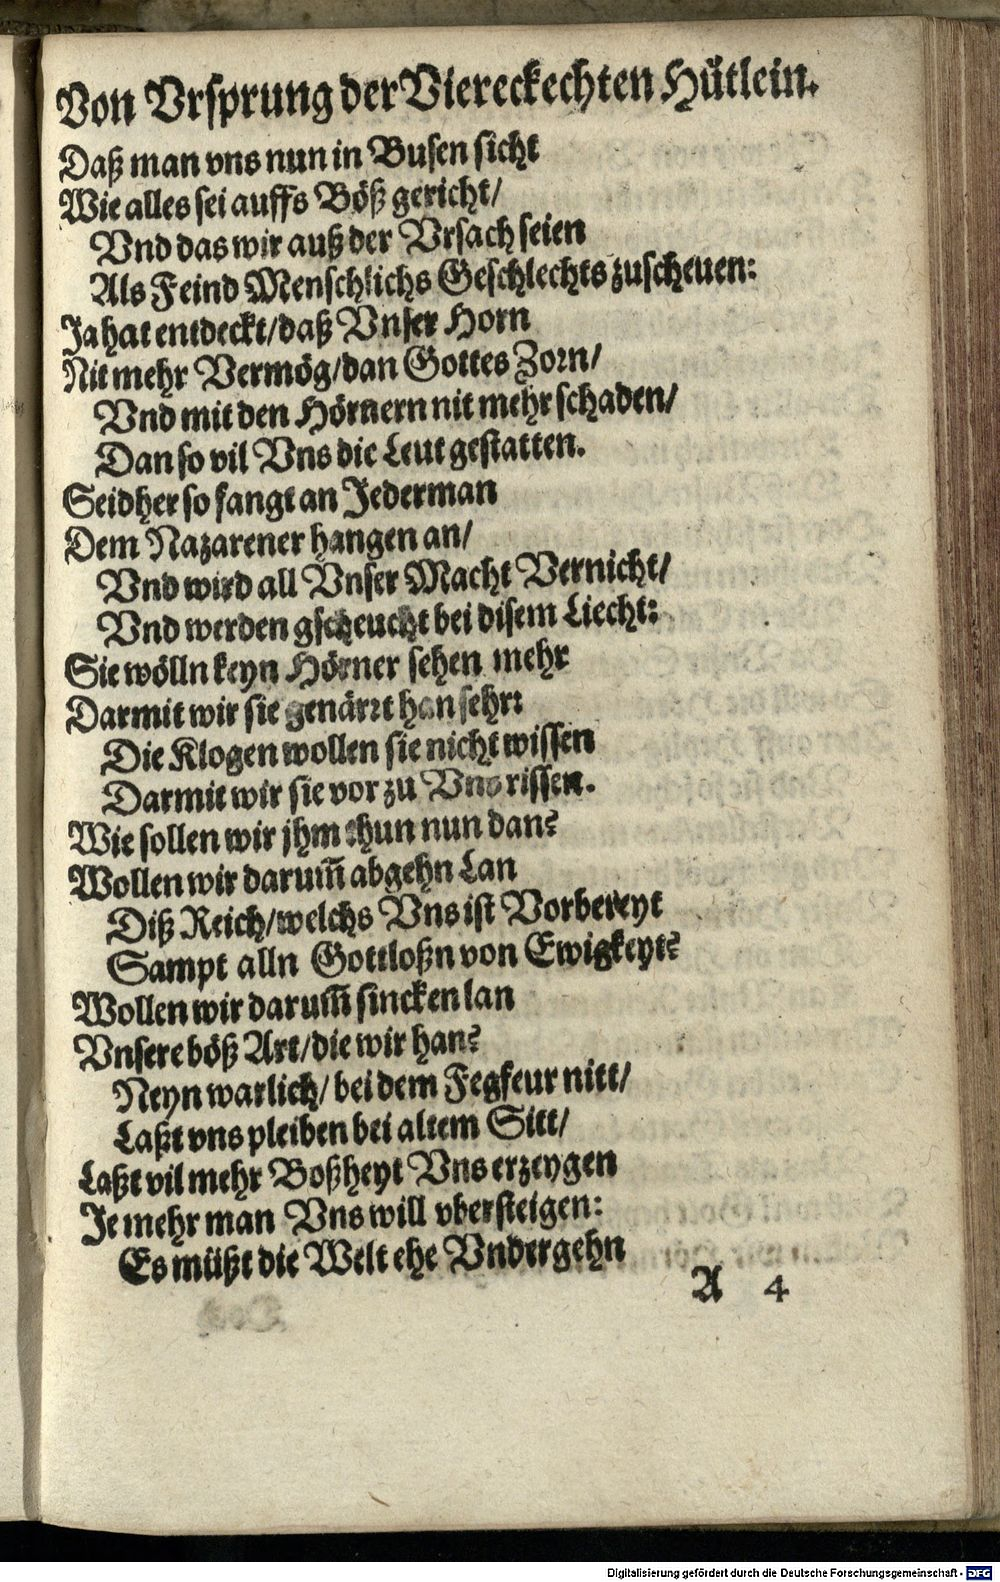 Von Vrsprung der Viereckechten Hütlein.
Daß man vns nun in Busen sicht
Wie alles sei auffs Böß gericht/
Vnd das wir auß der Vrsach seien
Als Feind Menschlichs Geschlechts zuscheuen:
Ja hat entdeckt/ daß Vnser Horn
Nit mehr Vermög/ dan Gottes Zorn/
Vnd mit den Hörnern nit mehr schaden/
Dan so vil Vns die Leut gestatten.
Seidher so fangt an Jederman
Dem Nazarener hangen an/
Vnd wird all Vnser Macht Vernicht/
Vnd werden gscheucht bei disem Liecht:
Sie wölln keyn Hörner sehen mehr
Darmit wir sie genärrt han sehr:
Die Klogen wollen sie nicht wissen
Darmit wir sie vor zu Vns rissen.
Wie sollen wir jhm thun nun dan?
Wollen wir darum̃ abgehn Lan
Diß Reich/ welchs Vns ist Vorbereyt
Sampt alln Gottloßn von Ewigkeyt?
Wollen wir darum̃ sincken lan
Vnsere böß Art/ die wir han?
Neyn warlich/ bei dem Fegfeur nitt/
Laßt vns pleiben bei altem Sitt/
Laßt vil mehr Boßheyt Vns erzeygen
Je mehr man Vns will vbersteigen:
Es müßt die Welt ehe Vndergehn
A 4
Digitalisierung gefördert durch die Deutsche Forschungsgemeinschaft - DFG